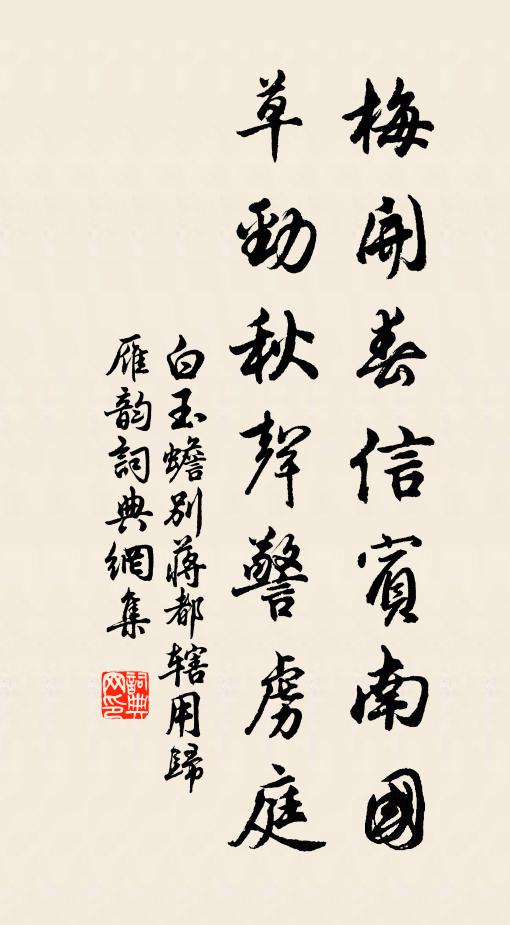 梅開春信賓南國
草勁秋聲警虜庭
白玉蟾別蔣都轄用歸
雁韵詞典網集
詞典
网印